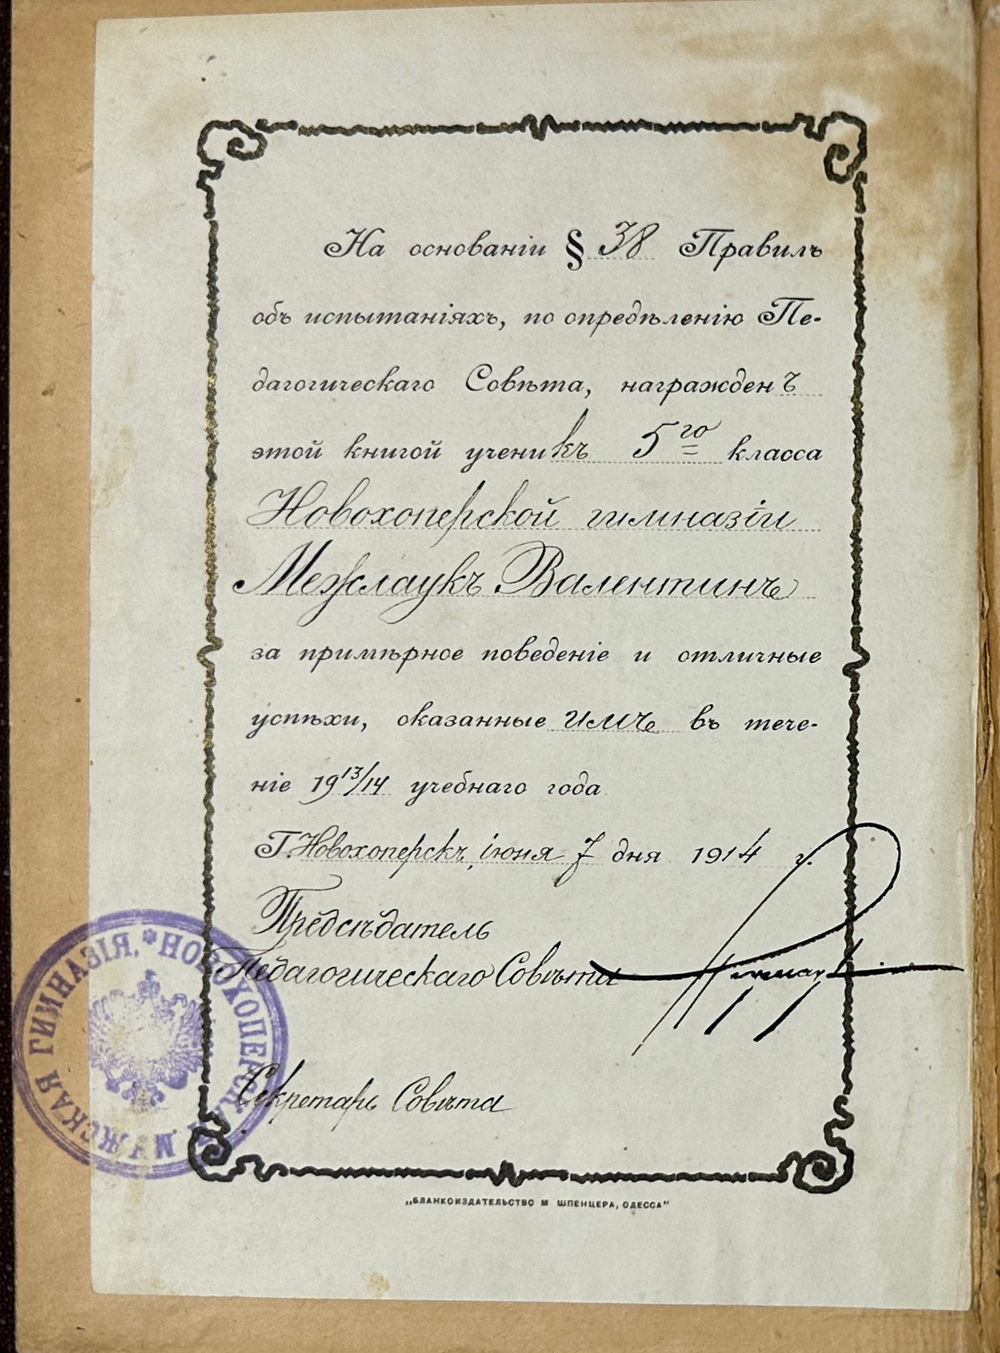 На основаніи § 38 Правилъ
объ испытаніяхъ, по опредѣленію Пе-
дагогическаго Совѣта, награжденъ
этой книгой ученикъ 5го класса
Новохоперской гимназіи
Межлаукъ Валентинъ
за примѣрное поведеніе и отличные
успѣхи, оказанные имъ въ тече-
ніе 1913/14 учебнаго года
Г. Новохоперскъ, іюня 7 дня 1914 г.
Предсѣдатель
Педагогическаго Совѣта
Секретарь Совѣта
НОВОХОПЕРСКАЯ МУЖСКАЯ ГИМНАЗІЯ,
„БЛАНКОИЗДАТЕЛЬСТВО М ШПЕНЦЕРА, ОДЕССА"